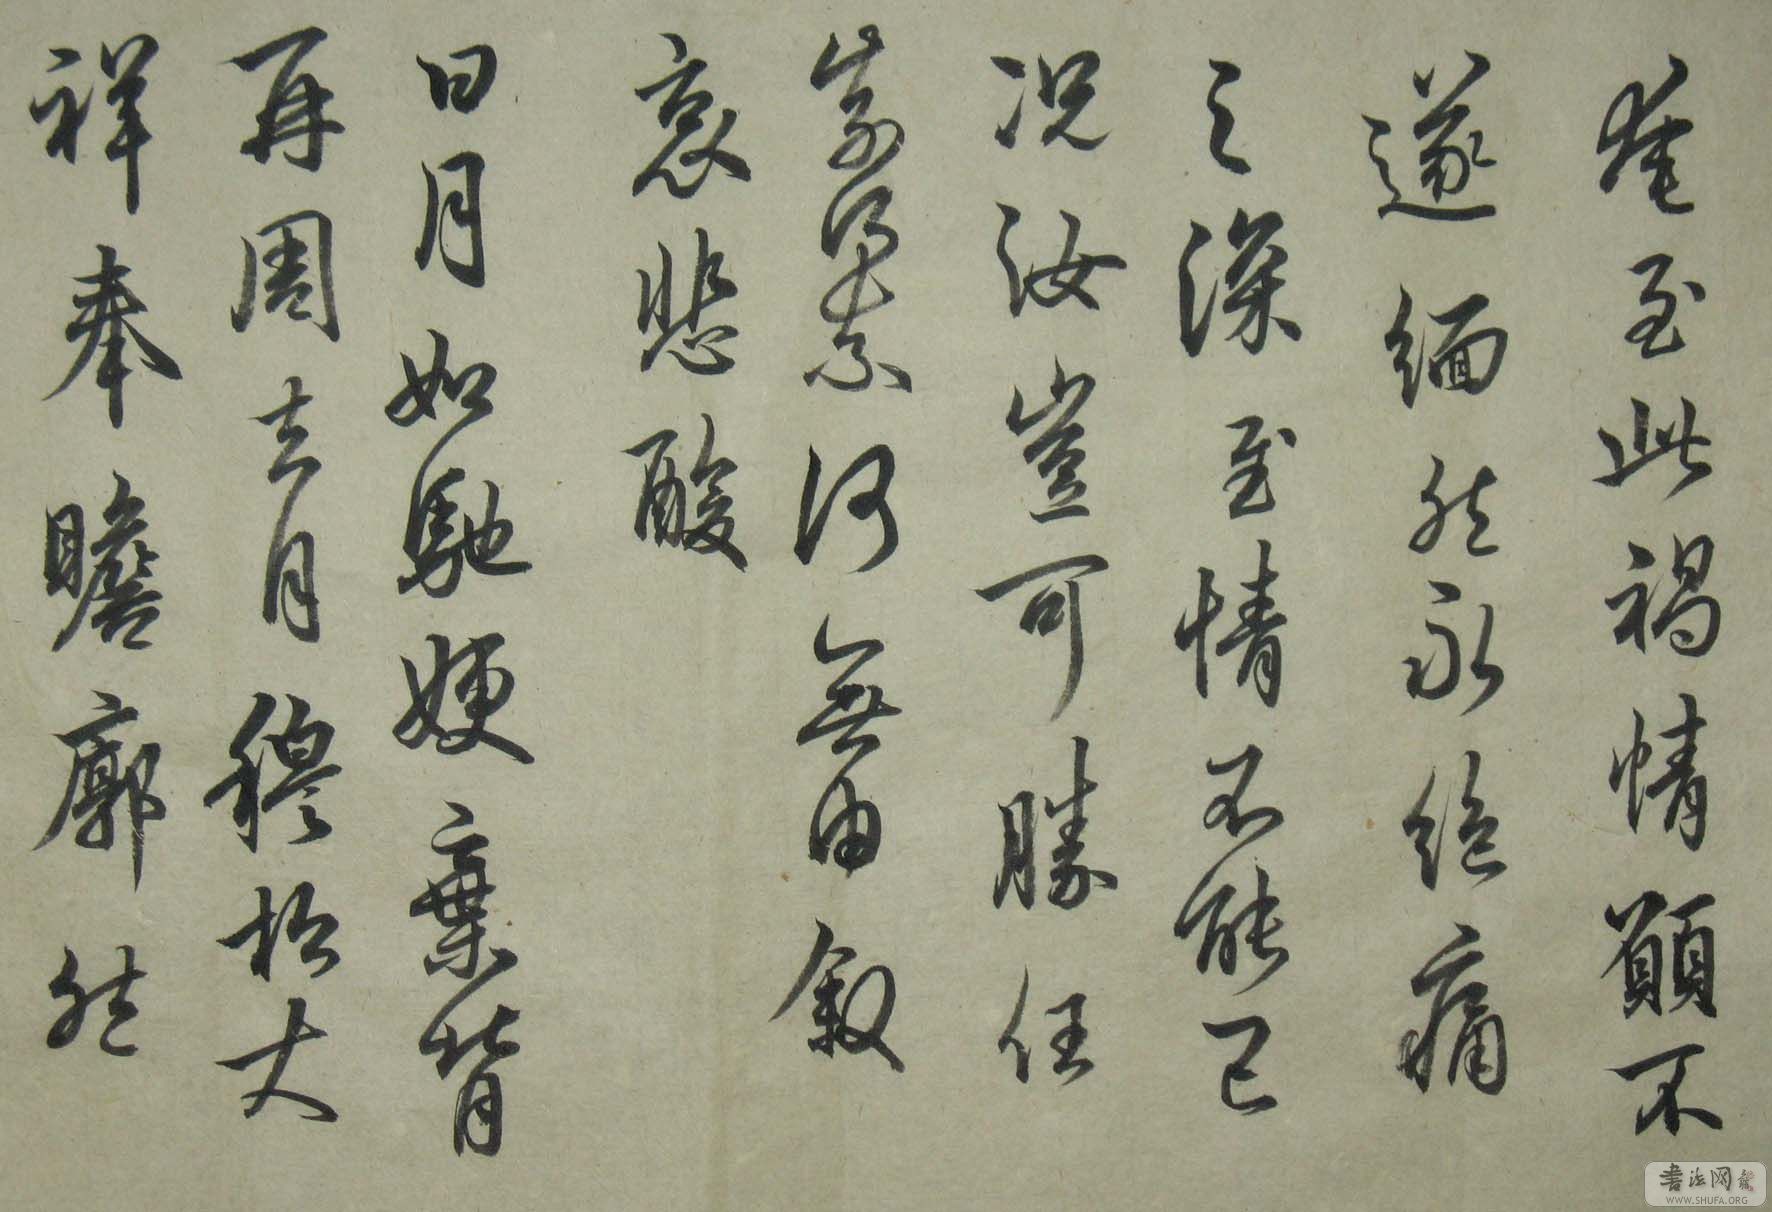 奄至此禍情願不
遂緬然永絕痛
之深至情不能已
況汝豈可勝任
奈何無由叙
哀悲酸
日月如馳嫂棄背
再周去月穆松大
祥奉瞻廓然
書法网
WWW.SHUFA.ORG